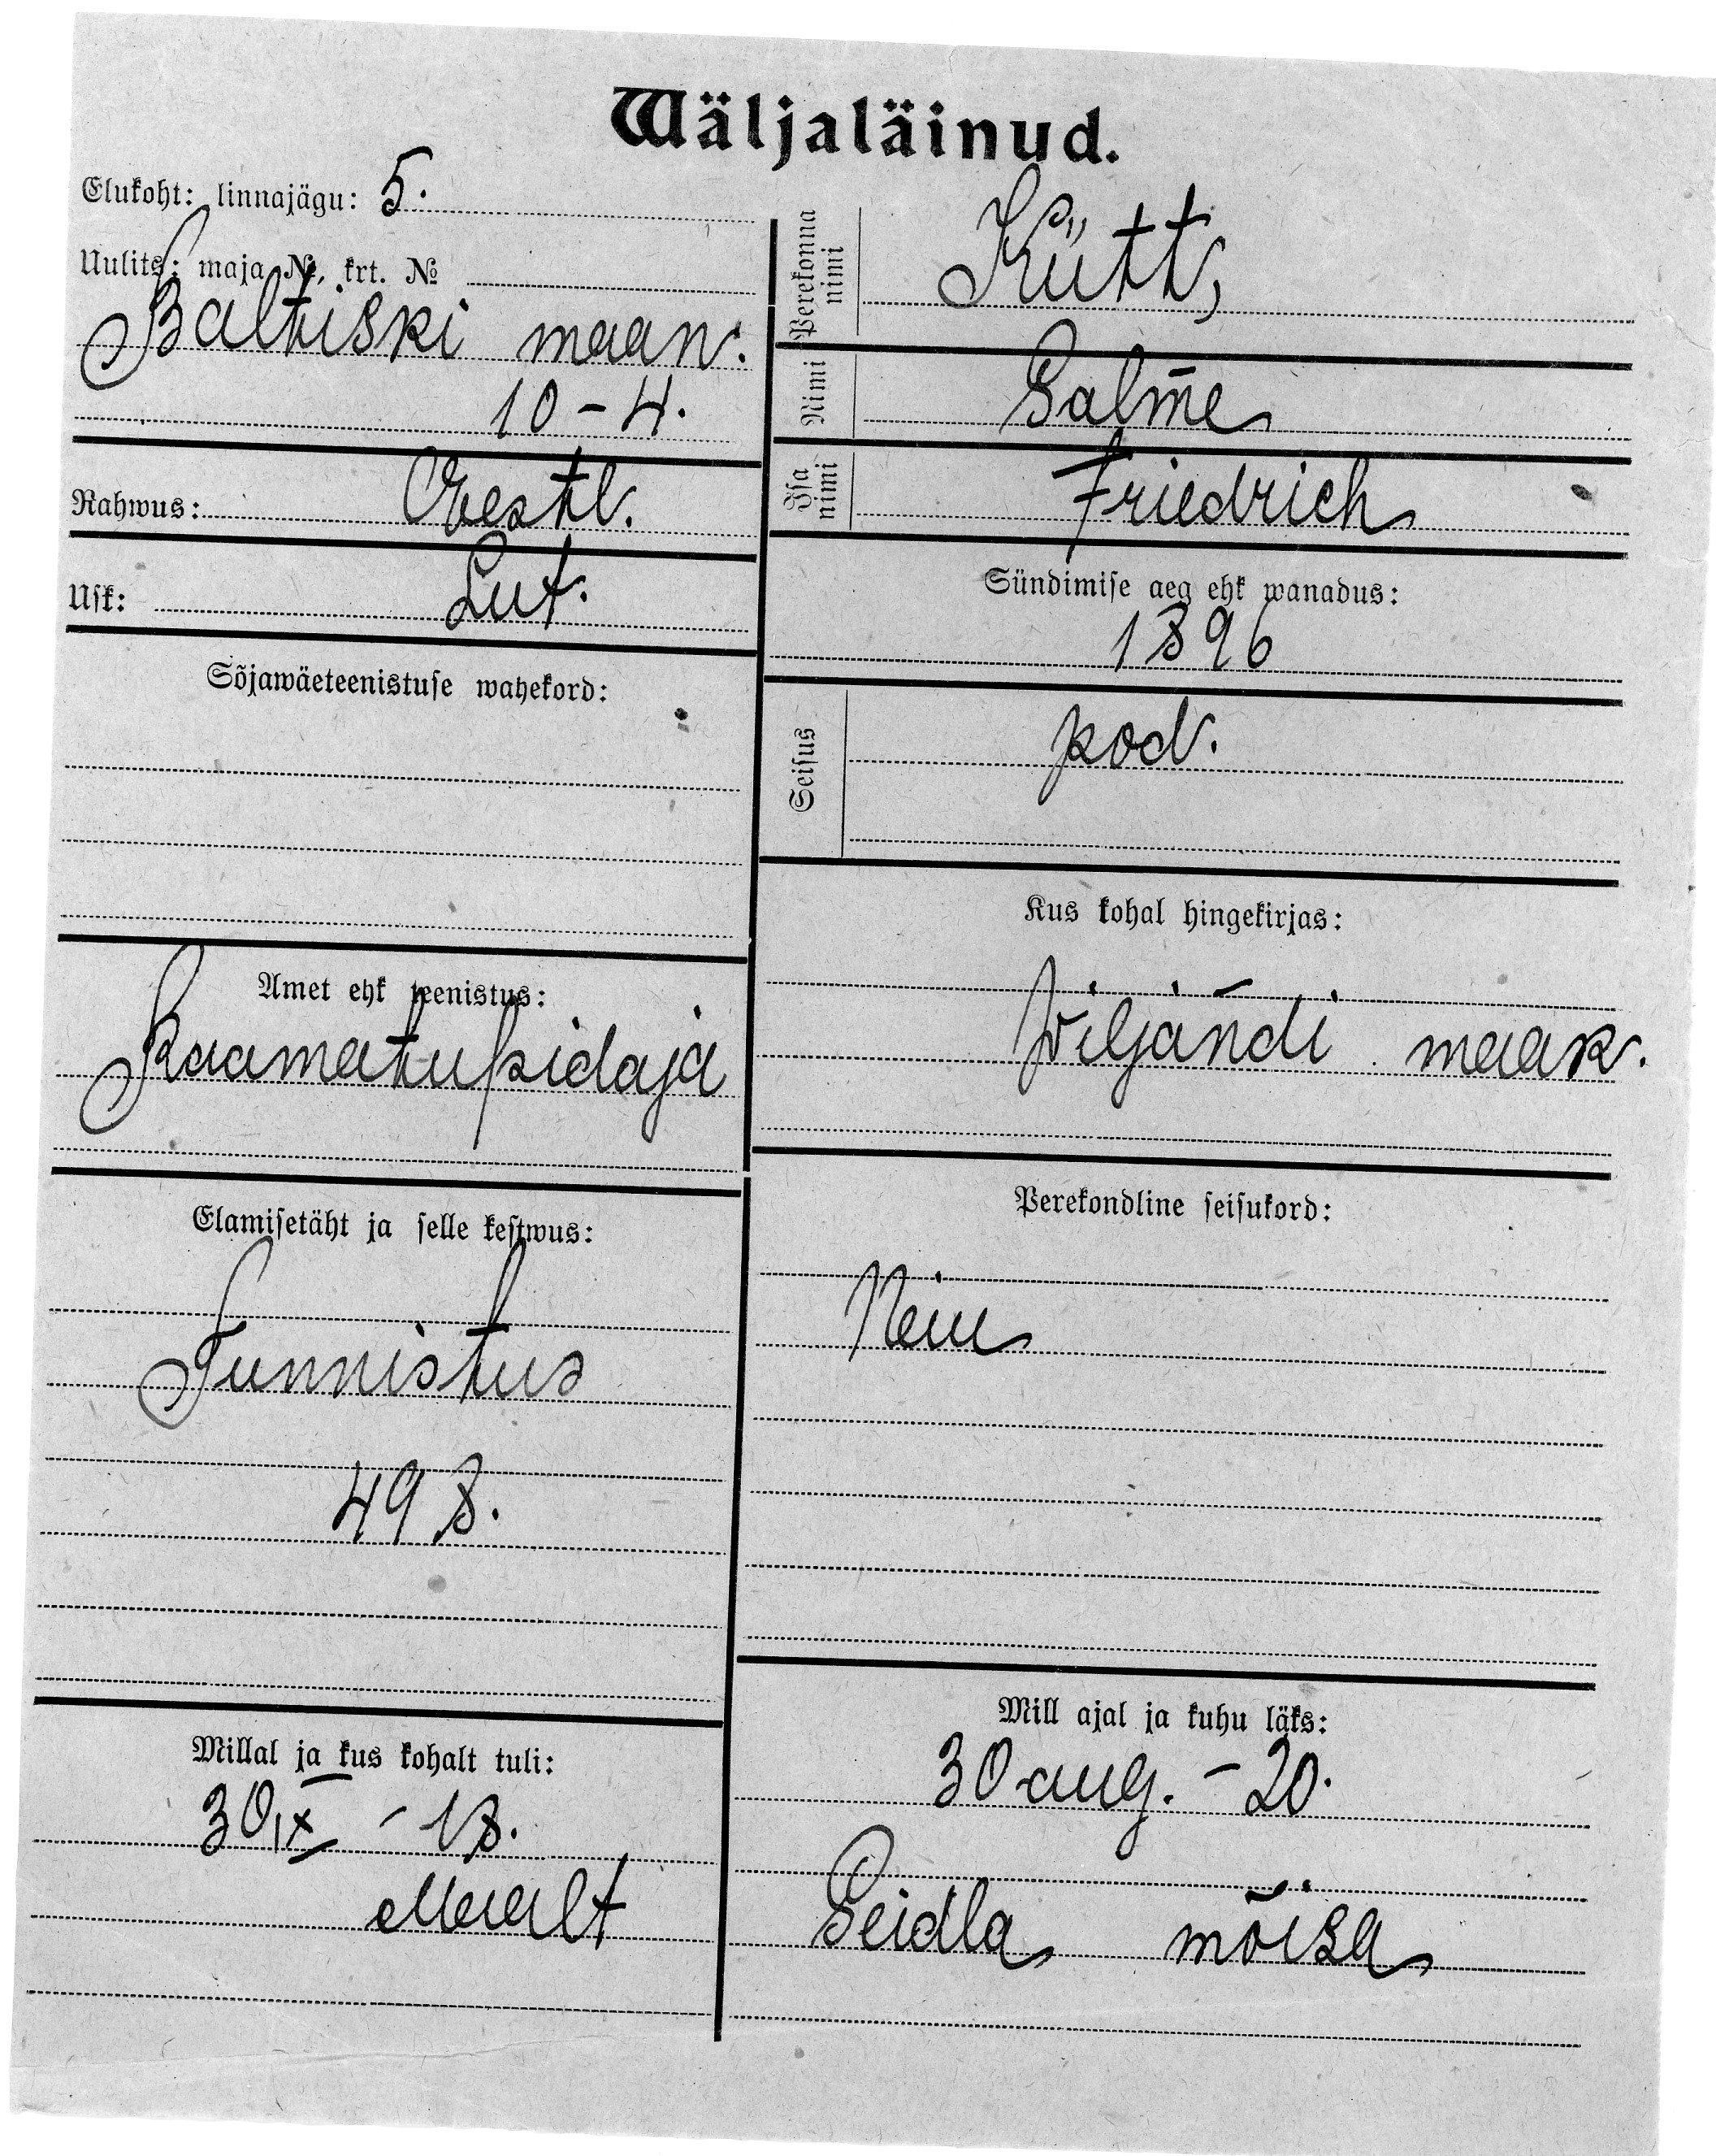 Wäljaläinud.
Elukoht: linnajägu: 5.
Uulits: maja №, krt. №
Baltiski maan.
10-4.
Rahwus: Eestl.
Usk: Lut.
Sõjawäeteenistuse wahekord:
Amet ehk teenistus:
Raamatupidaja
Elamisetäht ja selle kestwus:
Tunnistus
498.
Millal ja kus kohalt tuli:
30 IX - 18.
Maalt
Perekonna nimi Kütt,
Nimi Salme
Isa nimi Friedrich
Sündimise aeg ehk wanadus:
1896
Seisus pod.
Kus kohal hingekirjas:
Wiljandi maak.
Perekondline seisukord:
Neiu
Mill ajal ja kuhu läks:
30 aug. - 20.
Seidla mõisa